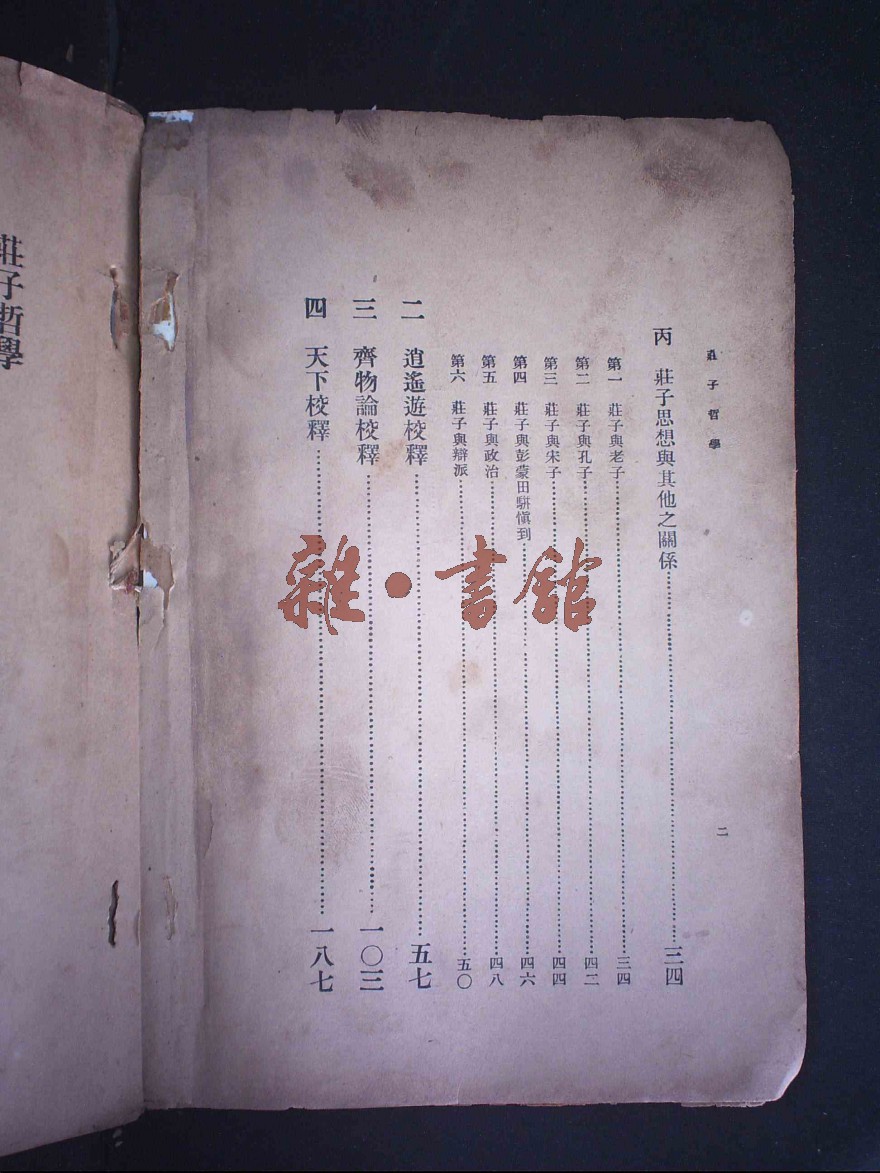 莊子哲學
二
丙 莊子思想與其他之關係……三四
第一 莊子與老子……三四
第二 莊子與孔子……四二
第三 莊子與宋子……四四
第四 莊子與彭蒙田駢慎到……四六
第五 莊子與政治……四八
第六 莊子與辯派……五〇
二 逍遙遊校釋……五七
三 齊物論校釋……一〇三
四 天下校釋……一八七
莊子哲學
雜·書館